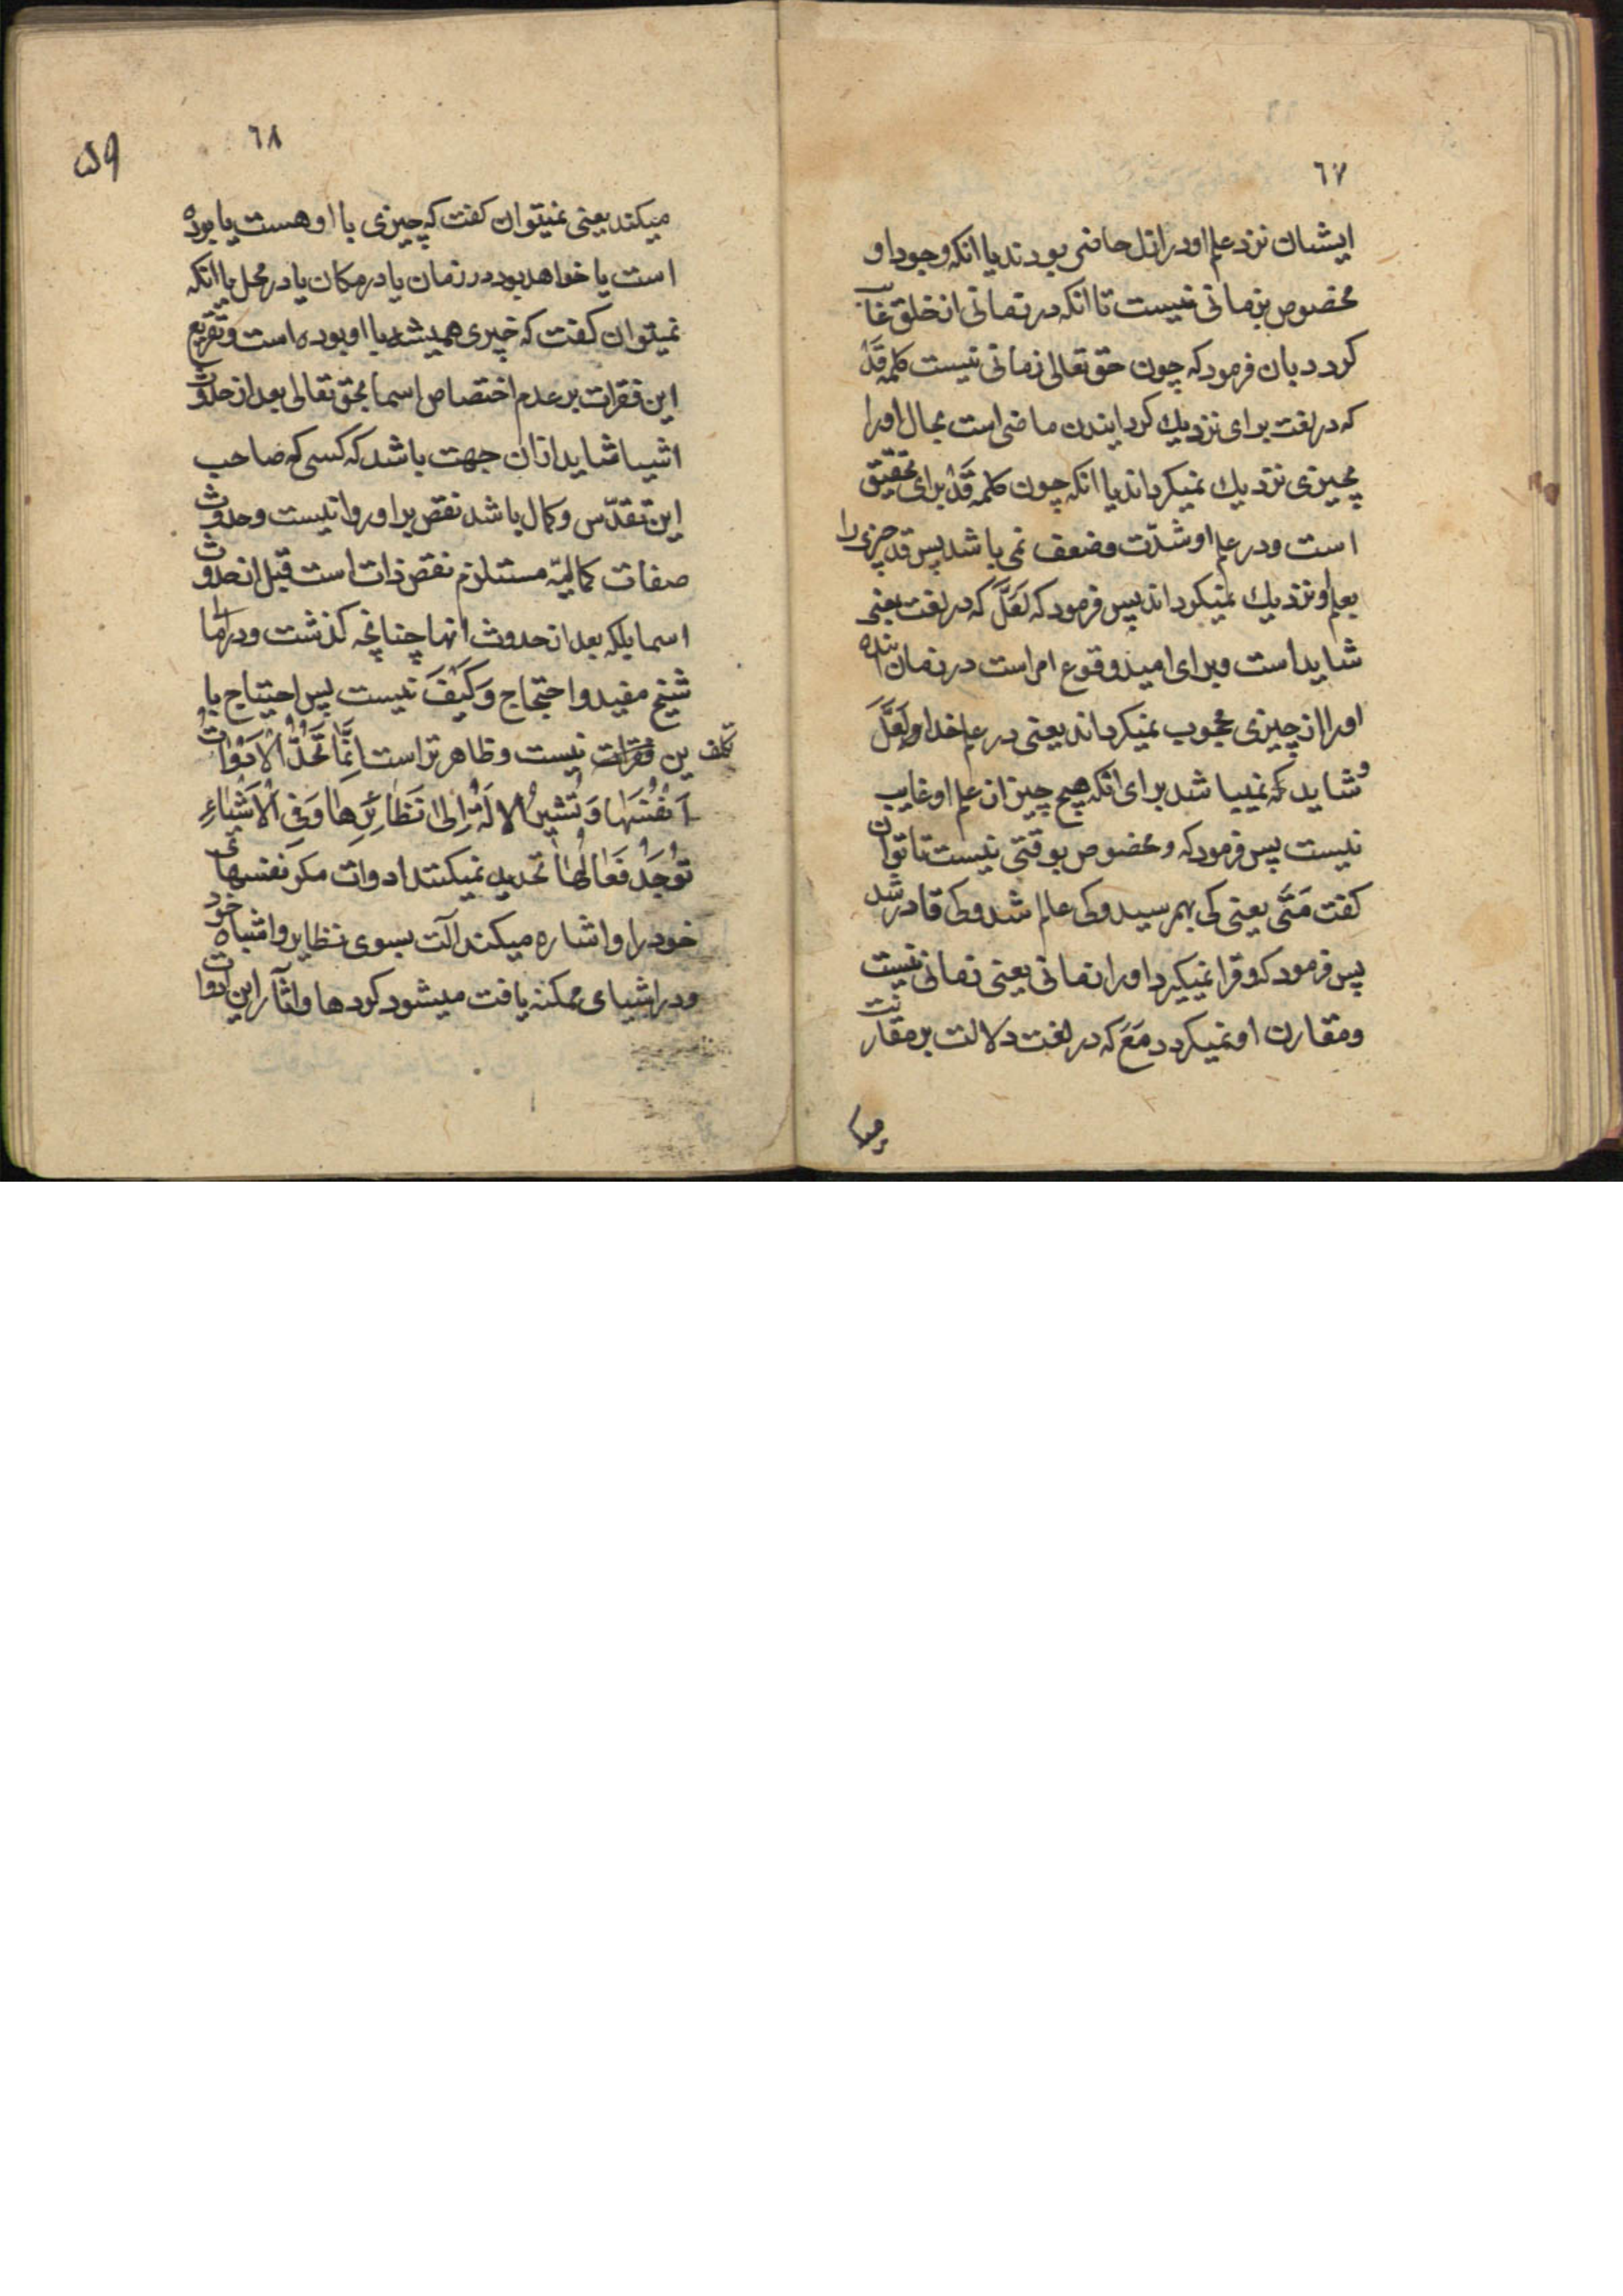 ٦٧
ایشان نزد علم او در ازل حاضر بودند یا انکه وجود او
مخصوص بزمانی نیست تا انکه در زمانی از خلق غایب
کردد بان فرمود که چون حق تعالی زمانی نیست کلمه قَدْ
که در لغت برای نزدیك کردایندن ماضی است بحال اورا
بچیزی نزدیك نمیکرداند یا انکه چون کلمه قَدْ برای تحقیق
است و در علم او شدّت و ضعف نمی باشد پس قد چیزی را
بعلم او نزدیك نمیکرداند پس فرمود که لَعَلَّ که در لغت بمعنی
شاید است و برای امید وقوع امر است در زمان اینده
اورا از چیزی محجوب نمیکرداند یعنی در علم خدا و لَعَلَّ
و شاید که نمیباشد برای انکه هیچ چیز از علم او غایب
نیست پس فرمود که و مخصوص بوقتی نیست تا توان
کفت مَتَّی یعنی کی بهم رسید و کی عالم شد و کی قادر شد
پس فرمود که و فرا نمیکیرد اورا زمانی یعنی زمانی نیست
و مقارن او نمیکردد مَعَ که در لغت دلالت بر مقارنت
٦٨
۵۹
میکند یعنی نمیتوان کفت که چیزی با او هست یا بوده
است یا خواهد بود در زمان یا در مکان یا در محل یا انکه
نمیتوان کفت که چیزی همیشه با او بوده است و تفریع
این فقرات بر عدم اختصاص اسما بحق تعالی بعد از حدوث
اشیا شاید ازان جهت باشد که کسی که صاحب
این تقدّس و کمال باشد نقص بر او روا نیست و حدوث
صفات کمالیّه مستلزم نقص ذات است قبل از حدوث
اسما بلکه بعد از حدوث انها چنانچه کذشت و در
شیخ مفید و احتجاج وَکَیْفَ نیست پس احتیاج با
تکلف ین فقرات نیست و ظاهر تر است اِنَّمَا تَحُدُّ الْاَدَوٰاتُ
اَنْفُسَهٰا وَ تُشیرُ الْاٰلَةُ اِلیٰ نَظٰائِرِهٰا وَفِی الْاَشْیٰاءِ
تُوجَدُ فَعٰالُهٰا تحدید نمیکنند ادوات مکر نفسهای
خود را و اشاره میکند آلت بسوی نظایر و اشباه خود
و در اشیای ممکنه یافت میشود کردها و اثار این ادوات